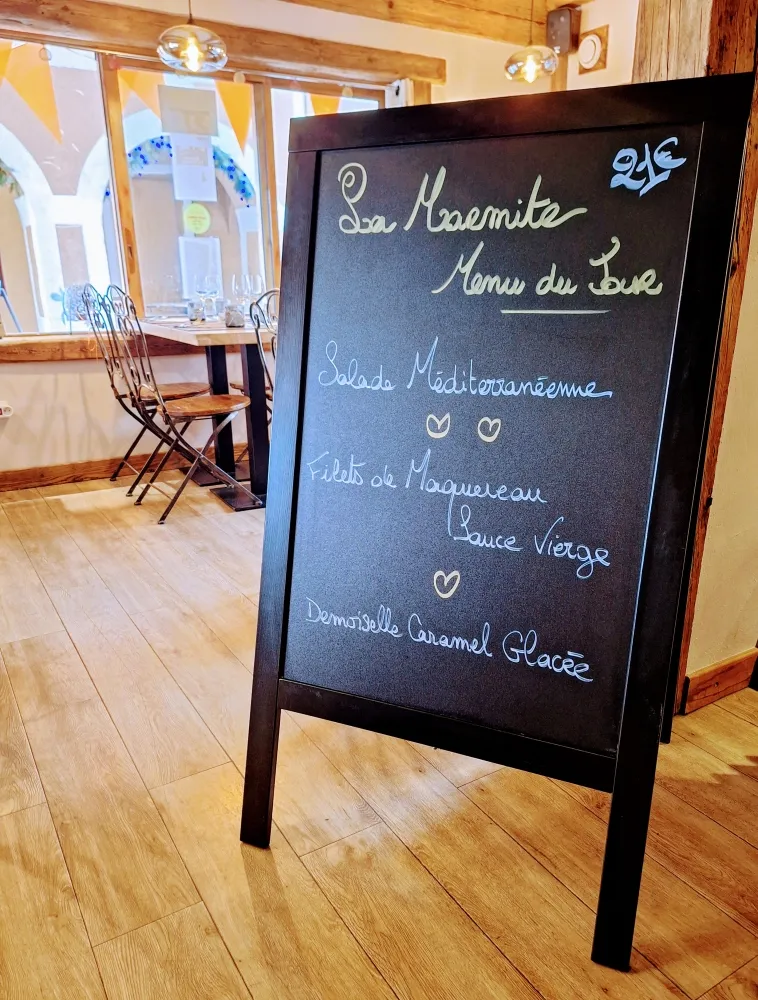 21€
La Marmite
Menu du Jour
Salade Méditerranéenne
Filets de Maquereau
Sauce Vierge
Demoiselle Caramel Glacée